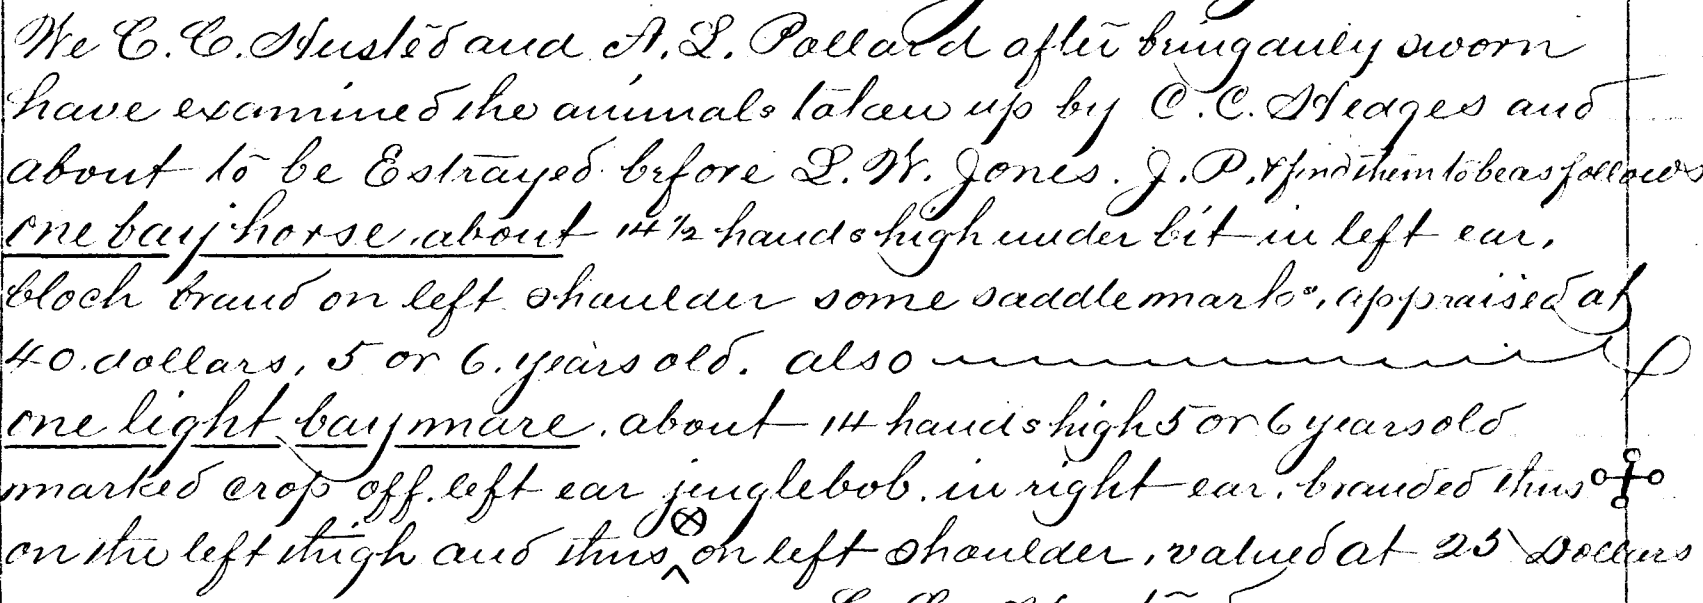 We C. C. Husted and A. L. Pollard after being duly sworn
have examined the animals taken up by C. C. Hedges and
about to be Estrayed before L. W. Jones. J. P. & find them to be as follows
one bay horse, about 14 1/2 hands high under bit in left ear,
bloch brand on left shoulder some saddle marks, appraised at
40 dollars, 5 or 6 years old. also
one light bay mare, about 14 hands high 5 or 6 years old
marked crop off left ear jinglebob in right ear, branded thus
on the left thigh and thus ⊗ on left shoulder, valued at 25 Dollars